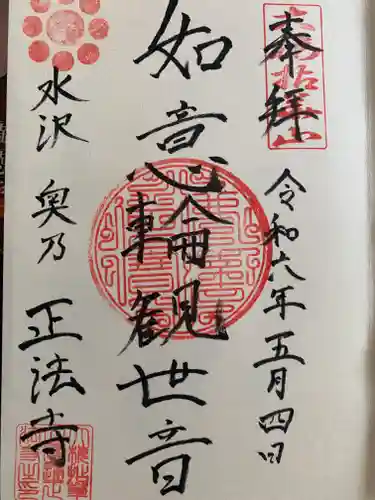 奉拝
令和六年五月四日
如意輪観世音
水沢 奥乃 正法寺